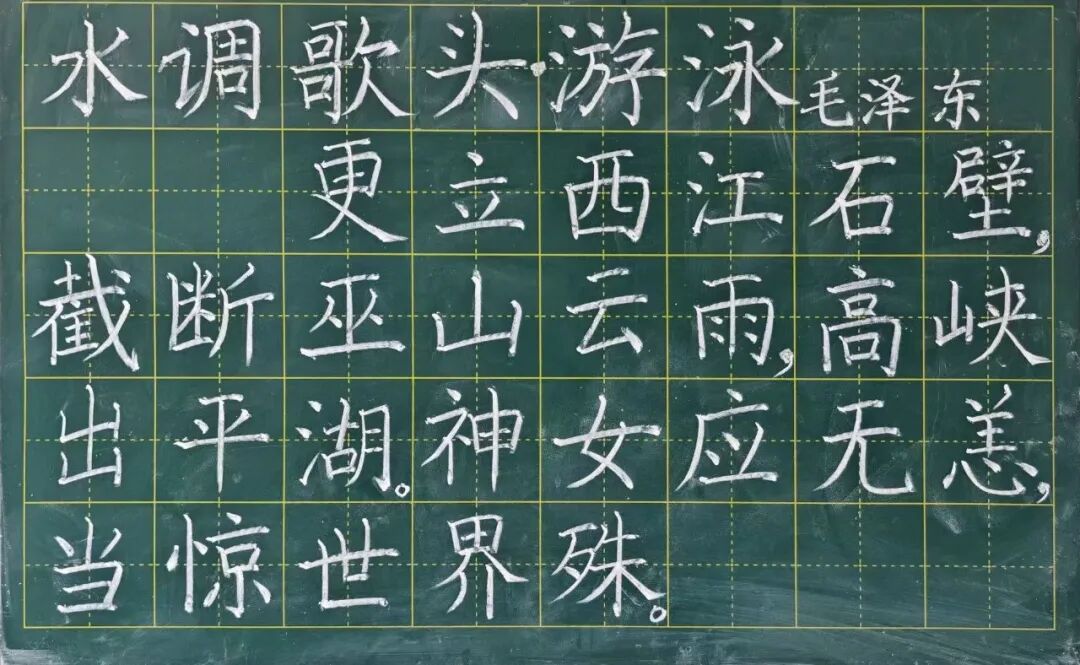 水调歌头·游泳 毛泽东
更立西江石壁,
截断巫山云雨,高峡
出平湖。神女应无恙,
当惊世界殊。